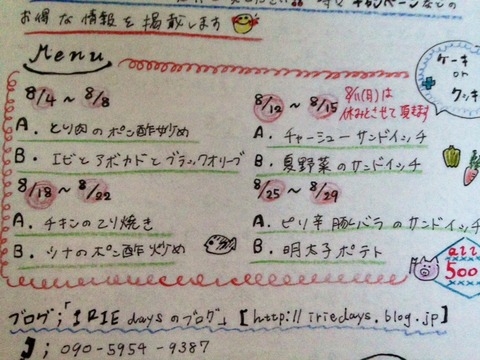 お得な情報を掲載します
Menu
8/4 ~ 8/8
A. とり肉のポン酢炒め
B. エビとアボカドとブラックオリーブ
8/12 ~ 8/15
8/11(月)は
休みとさせて頂きます
A. チャーシューサンドイッチ
B. 夏野菜のサンドイッチ
8/18 ~ 8/22
A. チキンのてり焼き
B. ツナのポン酢炒め
8/25 ~ 8/29
A. ピリ辛豚バラのサンドイッチ
B. 明太子ポテト
ケーキ
or
クッキ
all
500
ブログ;「IRIE daysのブログ」[http://iriedays.blog.jp]
; 090-5954-9387